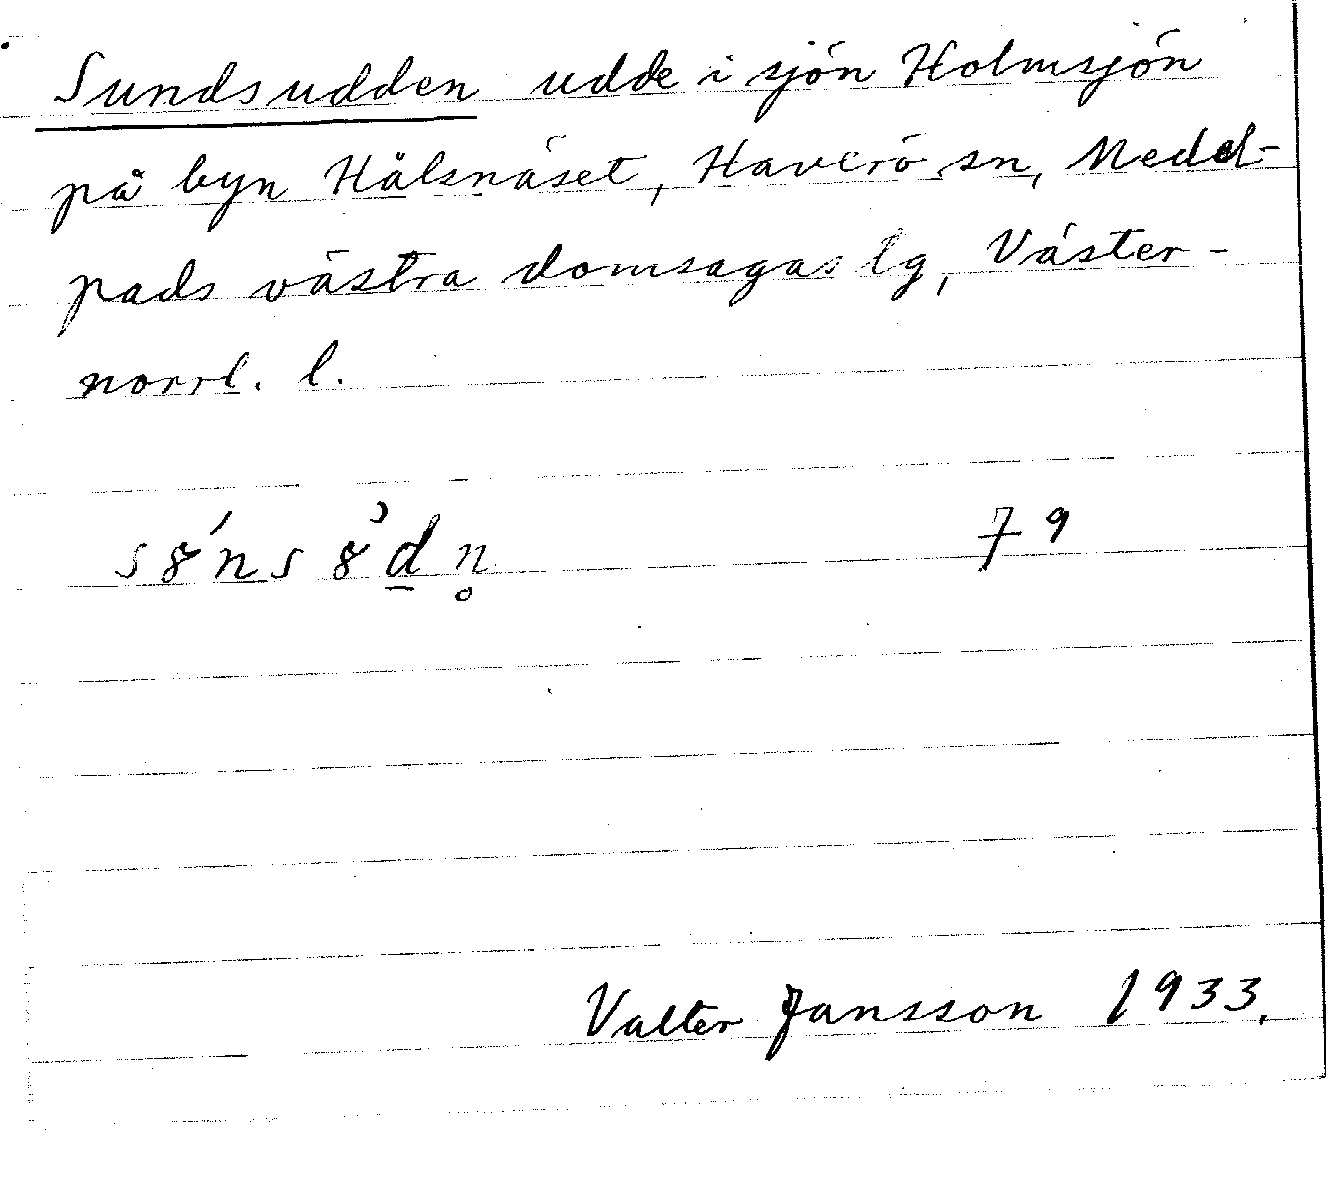 Sundsudden udde i sjön Holmsjön
på byn Hålsnäset, Haverö sn, Medel-
pads västra domsagas lg, Väster-
norrl. l.
79
Valter Jansson 1933.